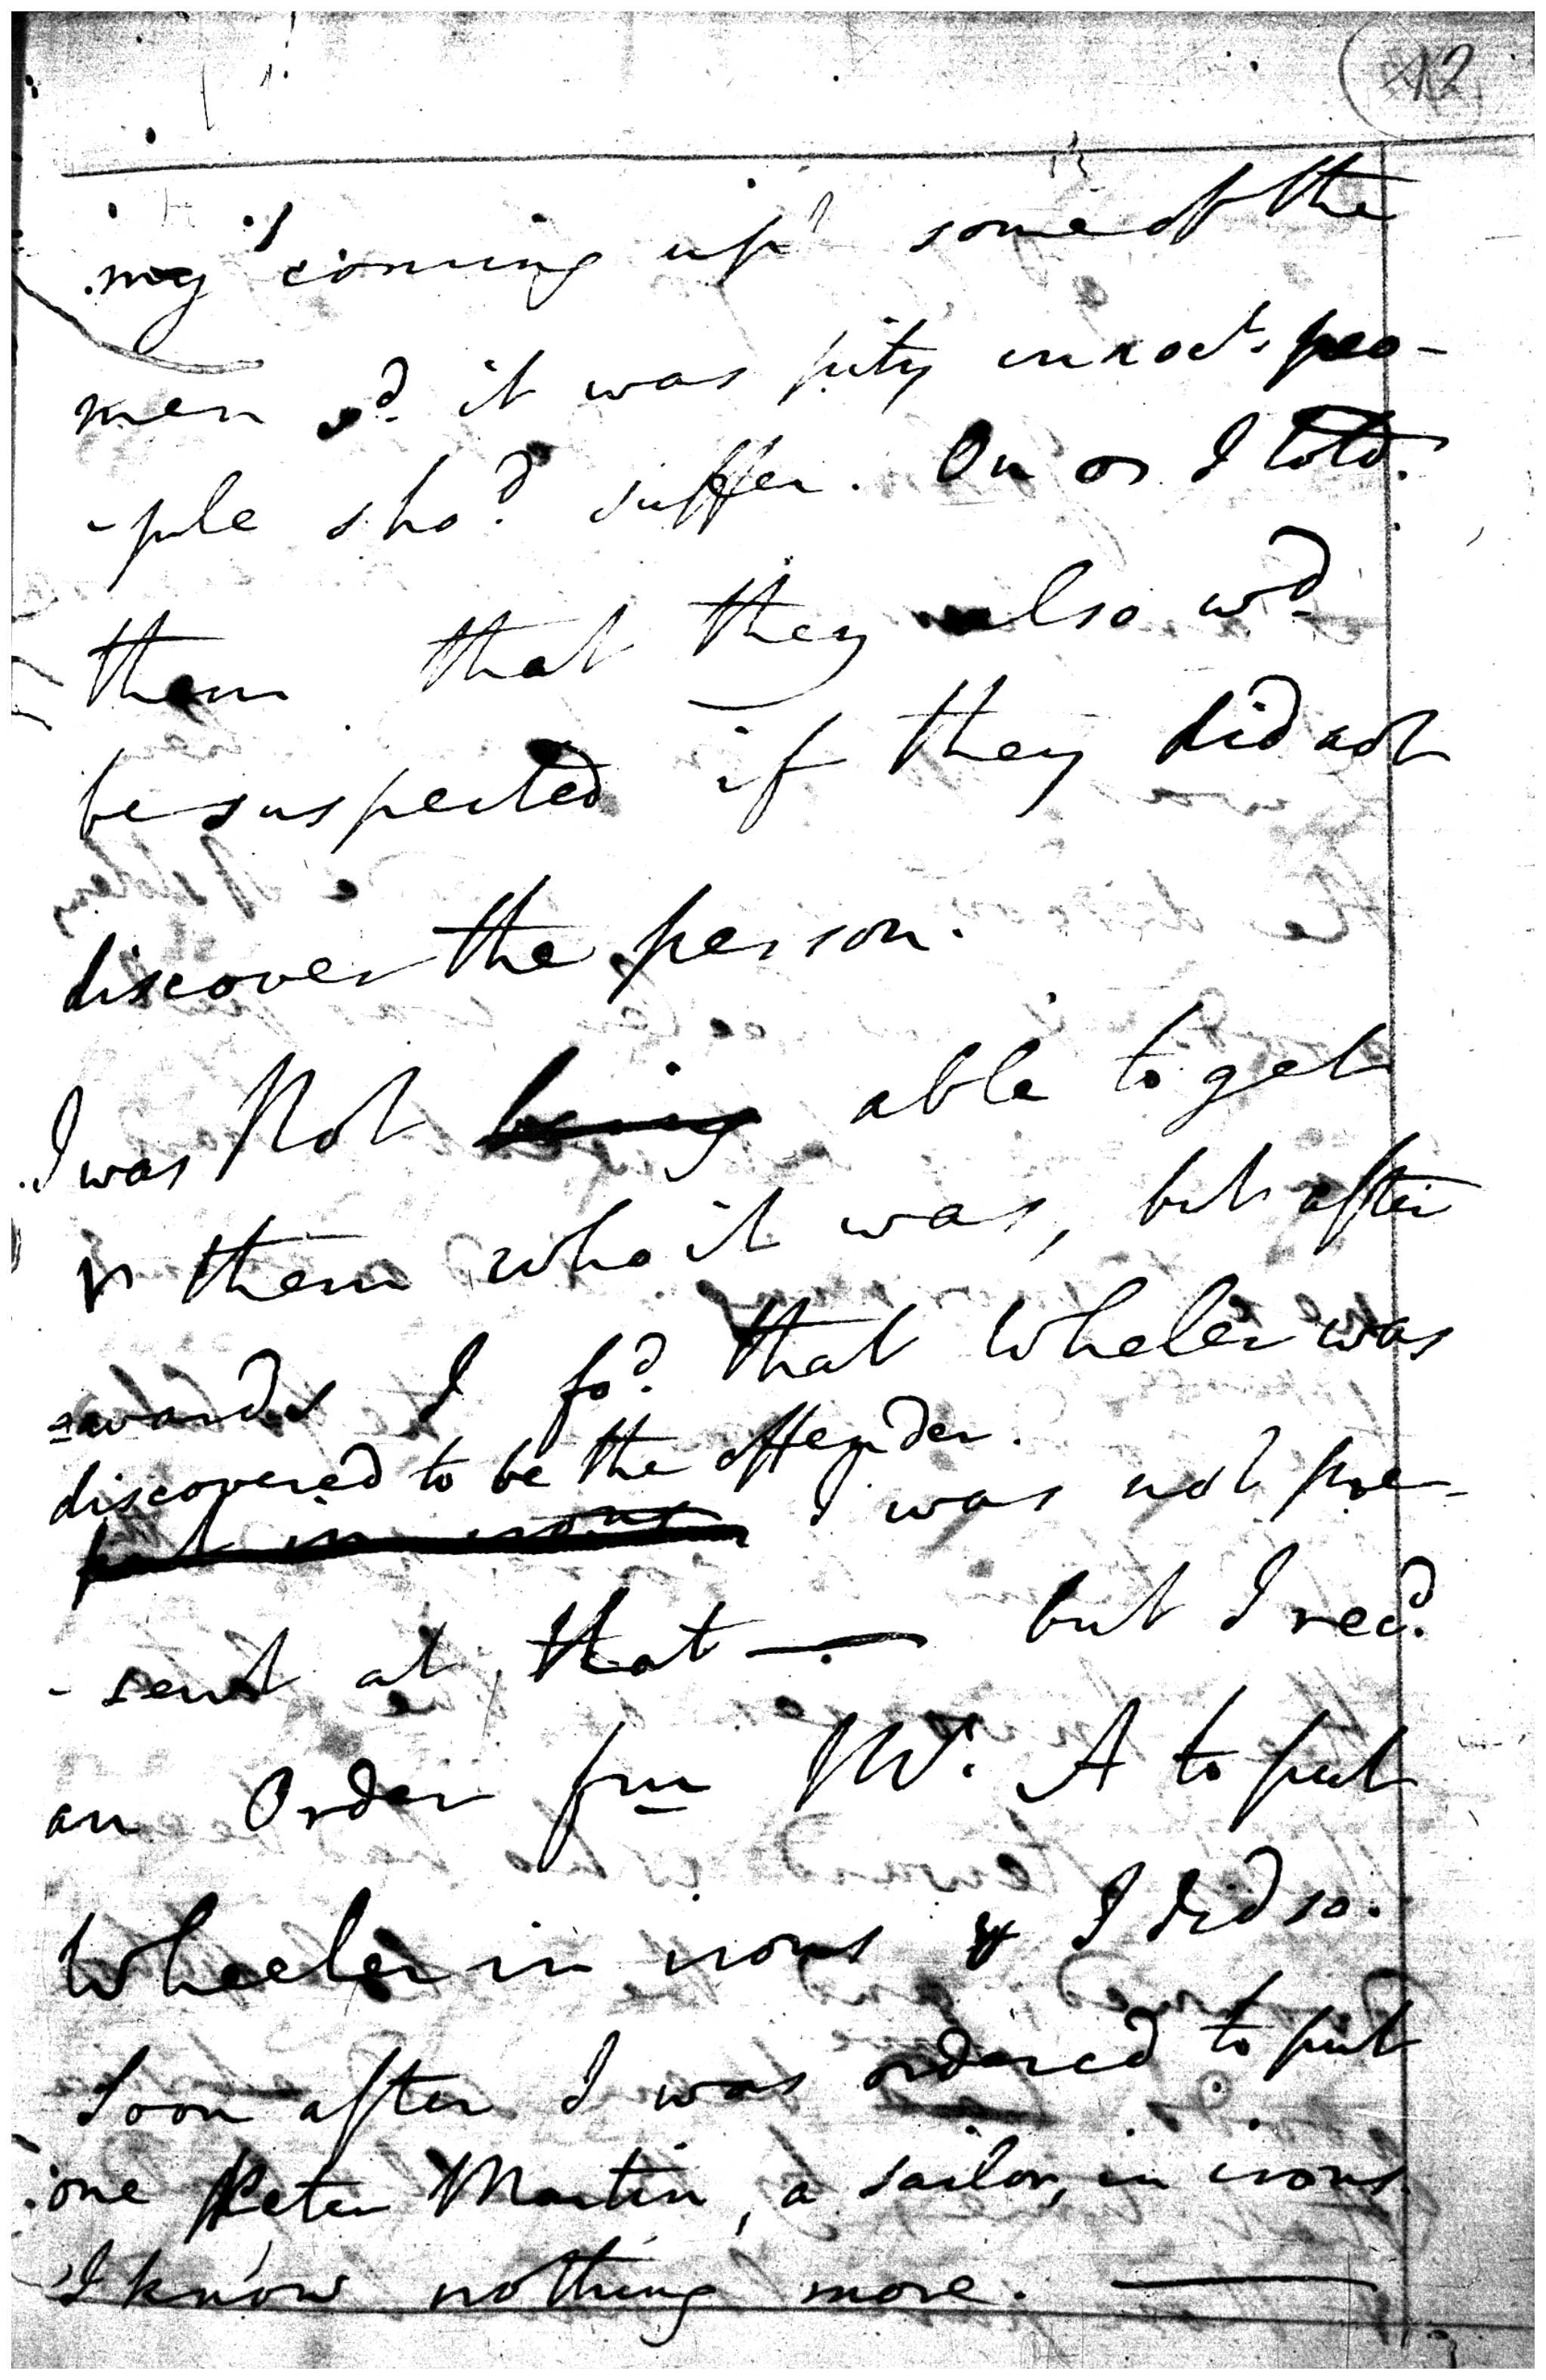 12
my coming up some of the
men sd. it was pity innoct. peo-
-ple shod. suffer. On I told.
them that they also wd.
be suspected if they did not
discover the person.
I was Not being able to get
them who it was, but after
=wards I fod. that Wheler was
discovered to be the offender.
put in irons I was not pre-
-sent at that — but I recd.
an Order frm Mr. A to put
Wheeler in irons & I did so.
Soon after I was ordered to put
one Peter Martin, a sailor, in irons.
I know nothing more. —